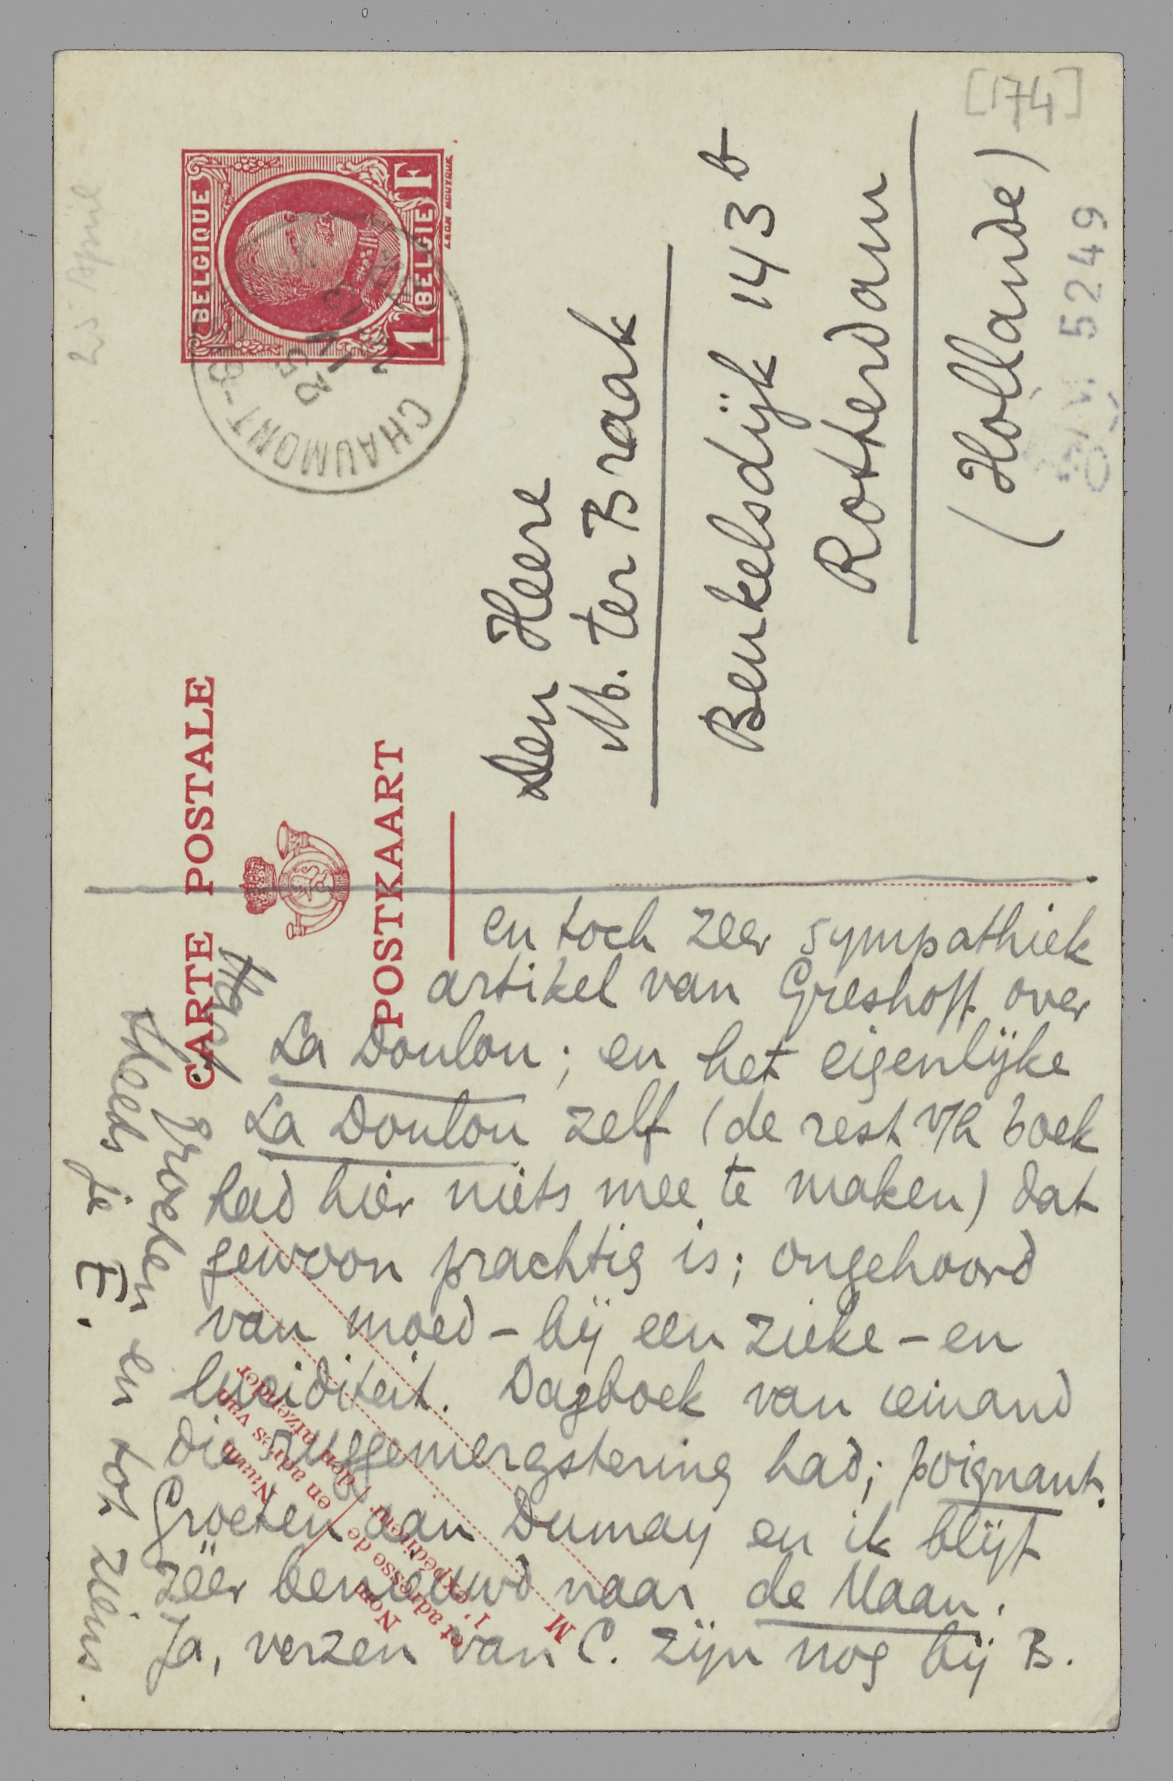 [174]
25 April
BELGIQUE
1 F
BELGIE
LEON HOUYOUX
CHAUMONT-G
CARTE POSTALE
POSTKAART
Den Heere
M. ter Braak
Beukelsdijk 143 b
Rotterdam
(Hollande)
5249
en toch zeer sympathiek
artikel van Greshoff over
La Doulou; en het eigenlijke
La Doulou zelf (de rest v/h boek
had hier niets mee te maken) dat
gewoon prachtig is; ongehoord
van moed – bij een zieke – en
luciditeit. Dagboek van iemand
die ruggemergstering had; poignant.
Groeten aan Dumay en ik blijf
zéér benieuwd naar de Maan.
Ja, verzen van C. zijn nog bij B.
Hart. groeten en tot ziens.
Steeds je E.
Naam
en adres van
den afzender
Nom
et adresse de
l'expéditeur
M